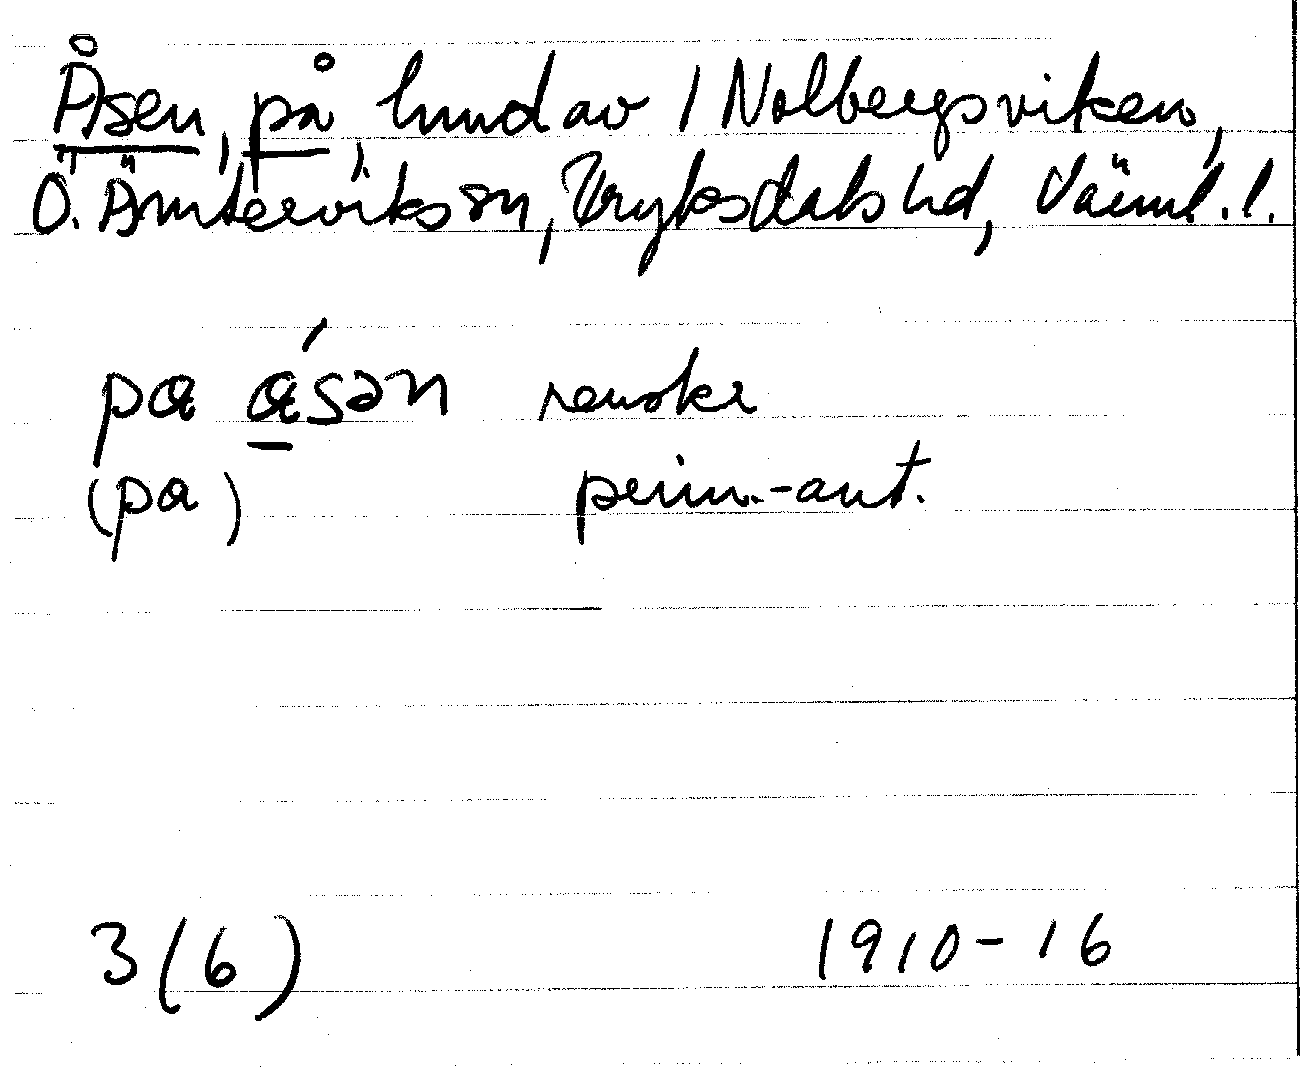 Åsen, på, hmd av 1 Nolbergsviken,
Ö. Ämterviks sn, Fryksdals hd, Värml. l.
pα άsən renskr
(pa) prim.-ant.
3(6) 1910-16